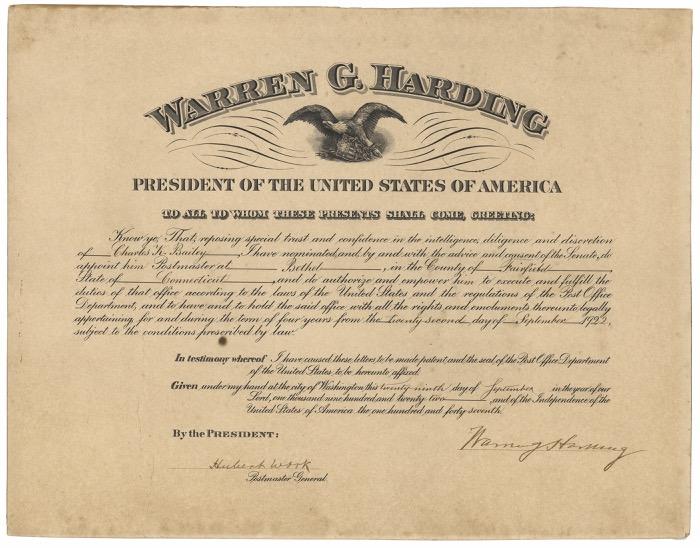 WARREN G. HARDING
PRESIDENT OF THE UNITED STATES OF AMERICA
TO ALL TO WHOM THESE PRESENTS SHALL COME, GREETING:
Know ye, That, reposing special trust and confidence in the intelligence, diligence and discretion
of Charles K. Bailey, I have nominated, and, by and with the advice and consent of the Senate, do
appoint him Postmaster at Bethel, in the County of Fairfield
State of Connecticut, and do authorize and empower him to execute and fulfill the
duties of that office according to the laws of the United States and the regulations of the Post Office
Department, and to have and to hold the said office with all the rights and emoluments thereunto legally
appertaining, for and during the term of four years from the twenty-second day of September 1922,
subject to the conditions prescribed by law.
In testimony whereof I have caused these letters to be made patent and the seal of the Post Office Department
of the United States to be hereunto affixed.
Given under my hand at the city of Washington this twenty-ninth day of September in the year of our
Lord, one thousand nine hundred and twenty two, and of the Independence of the
United States of America the one hundred and forty-seventh.
By the PRESIDENT:
Warren G Harding
Hubert Work
Postmaster General.